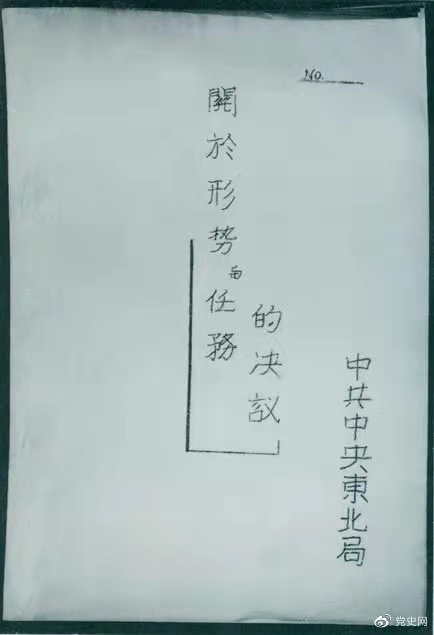 NO.
中共中央東北局
關於形势与任務
的决议
党史网